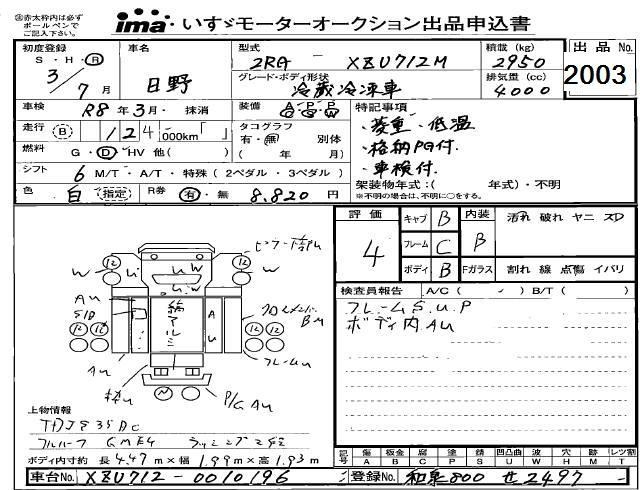 ㊟赤太枠内は必ず
ボールペンで
ご記入下さい。
ima いすゞモーターオークション出品申込書
初度登録
S・H・Ⓡ
3/7月
車名
日野
型式
2RG - XZU712M
積載(kg)
2950
出品No.
2003
グレード・ボディ形状
冷蔵冷凍車
排気量(cc)
4000
車検 R8年3月・抹消
装備
特記事項
・菱重・低温
・格納PG付.
・車検付.
走行 Ⓑ 124,000km「 」
タコグラフ
有・無 別体
( 年 月)
燃料 G・Ⓓ・HV 他( )
シフト 6 M/T・A/T・特殊(2ペダル・3ペダル)
架装物年式:( 年式)・不明
※不明の場合は、不明に○をする。
色 白 指定 R券 有・無 8.820円
評価
4
キャブ B
フレーム C
ボディ B
内装
B
汚れ 破れ ヤニ スD
Fガラス 割れ 線 点傷 イバリ
検査員報告 A/C( ) B/T( )
フレームS.U.P
ボディ内AU
12 12
W U U W W
AU
S1D
AU
BM
フレームU
AU
N
P/G AU
上物情報
TDJS35DC
フルハーフ GME4
ボディ内寸約 長4.47m×幅1.99m×高1.93m
記号
傷 板金 腐 塗 錆 凹凸曲 波 穴 歩 レツ割
A B C P S U W H M T
車台No. XZU712-0010196
登録No. 和泉800 せ2497